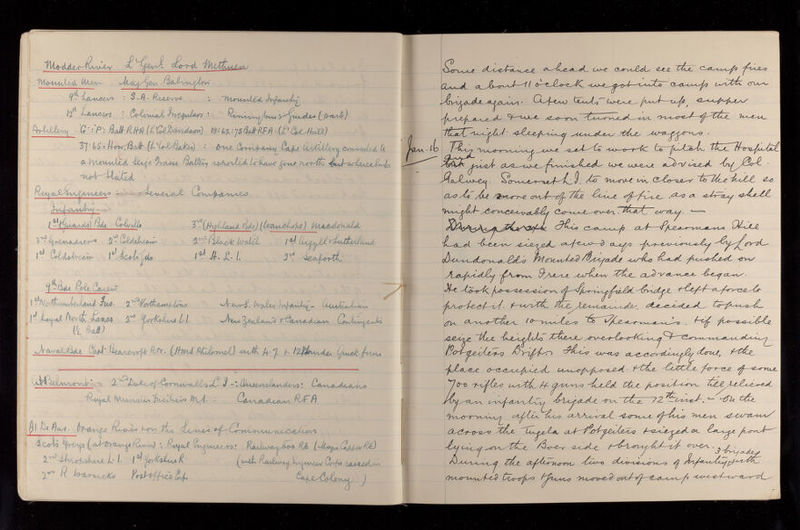 Modder River Lt Genl Lord Methuen
Mounted Men Maj Gen Babington
9th Lancers : S.A. Reserve : Mounted Infantry
12th Lancers : Colonial Irregulars : Remington's Guides (part)
Artillery G : P : Batt RHA 18 : 62 : 75 Batt RFA (Lt Col Hall)
37 : 65 : Howr Batt One Company Cape Artillery converted to
a mounted large Battery reported to have gone north but whereabouts
not stated
Royal Engineers Several Companies
Infantry
1st (Guards) Bde Colville 3rd (Highland Bde) Macdonald
3rd Grenadiers 2nd Coldstream 2nd Black Watch 1st Argyll & Sutherland
1st Coldstream 1st Scots Gds 1st H. L. I. 2nd Seaforth
9th Bde Pole Carew
1st Northumberland Fus. 2nd Northamptons New S. Wales Infantry - Australian
1st Loyal North Lancs 2nd Yorkshire L I New Zealand & Canadian Contingents
(½ Batt)
Naval Bde Capt Bearcroft R.N. with 4.7 & 12 Pounder quick firers
At Belmont :- 2nd Duke of Cornwalls L I - : Queenslanders : Canadians
Royal Munster Fusiliers M.I. - Canadian R F A
At De Aar. Orange River & on the Lines of Communication
Scots Greys (at Orange River) : Royal Engineers : Railway
2nd Shropshire L I. 1st Yorkshire R (with Railway Pioneer Corps raised in
2nd R Warwicks Post Office Cps Cape Colony)
Some distance ahead we could see the camp fires
and about 11 o'clock we got into camp with our
brigade again. A few tents were put up, supper
prepared & we soon turned in most of the men
that night sleeping under the waggons.
Jan. 16 This morning we set to work to pitch the Hospital
and just as we finished we were advised by Col
Galwey. Somerset L.I. to move in closer to the hill so
as to be more out of the line of fire, as a stray shell
might conceivably come over that way. —
This camp at Spearmans Hill
had been seized a few days previously by Lord
Dundonald's Mounted Brigade who had pushed on
rapidly from Frere when the advance began.
He took possession of Springfield bridge & left a force to
protect it & with the remainder decided to push
on another 10 miles to Spearman's & if possible
seize the heights there, overlooking & commanding
Potgeiters Drift. This was accordingly done, & the
place occupied unopposed & the little force of some
700 rifles with 4 guns held the position till relieved
by an infantry brigade on the 12th inst. - On the
morning after his arrival some of his men swam
across the Tugela at Potgeiters & seized a large pont
lying on the Boer side & brought it over.
3 brigades
During the afternoon two divisions of Infantry with
mounted troops & guns moved out of camp westward